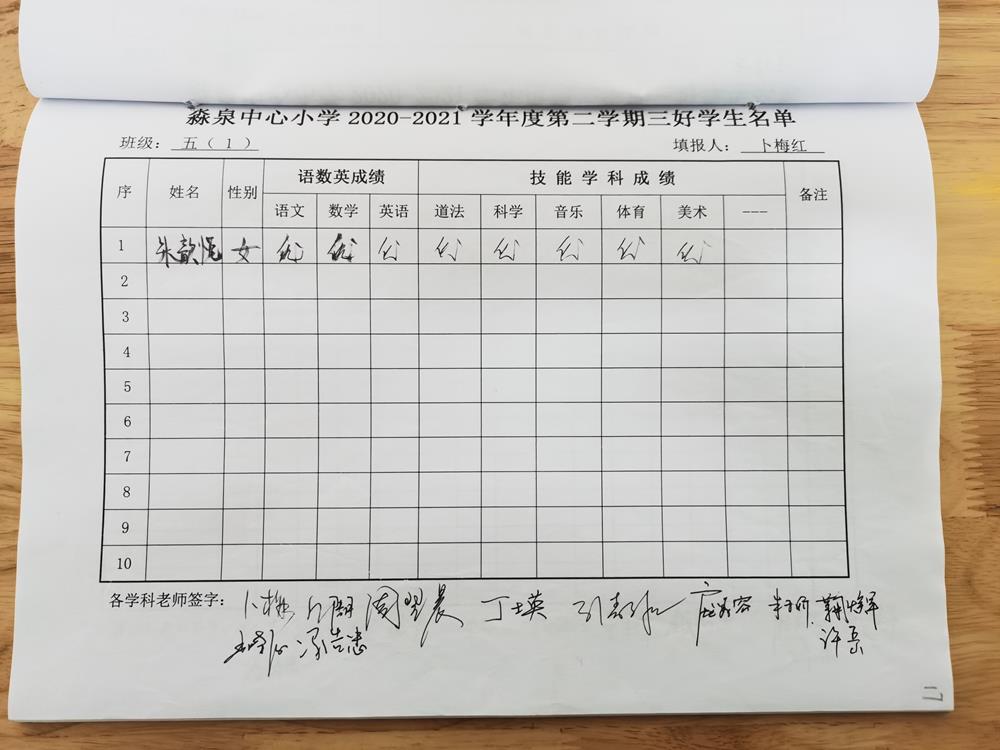 淼泉中心小学2020-2021学年度第二学期三好学生名单
班级：五（1） 填报人：卜梅红
语数英成绩 技能学科成绩
序 姓名 性别 备注
语文 数学 英语 道法 科学 音乐 体育 美术 ---
1 朱歆 女 优 优 优 优 优 优 优 优
2
3
4
5
6
7
8
9
10
各学科老师签字： 丁士英
冯吉忠 许